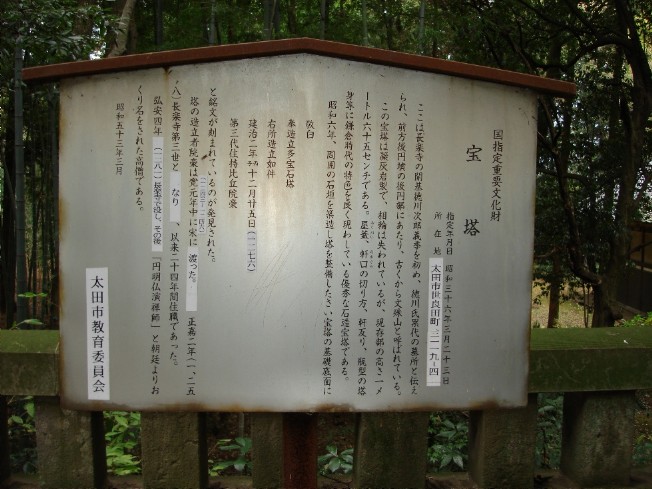 国指定重要文化財
宝塔
指定年月日 昭和三十六年三月二十三日
所在地 太田市世良田町三一一九−四
ここは長楽寺の開基徳川次郎義季を初め、徳川氏累代の墓所と伝え
られ、前方後円墳の後円部にあたり、古くから文殊山と呼ばれている。
この宝塔は凝灰岩製で、相輪は失われているが、現存部の高さ一メ
ートル六十五センチである。屋蓋、軒口の切り方、軒反り、瓶型の塔
身等に鎌倉時代の特色を良く現わしている優秀な石造宝塔である。
昭和六年、周囲の石垣を築造し塔を整備したさい宝塔の基礎裏面に
敬白
奉造立多宝石塔
右所造立如件
建治二年丙子十二月廿五日(一二七六)
第三代住持比丘院豪
と銘文が刻まれているのが発見された。
塔の造立者院豪は寛元年中に宋に渡った。 正嘉二年(一、二五
八)長楽寺第三世となり、以来二十四年間住職であった。
弘安四年(一二八一)長楽寺で没し、その後「円明仏演禅師」と朝廷よりお
くり名をされた高僧である。
昭和五十三年三月
太田市教育委員会